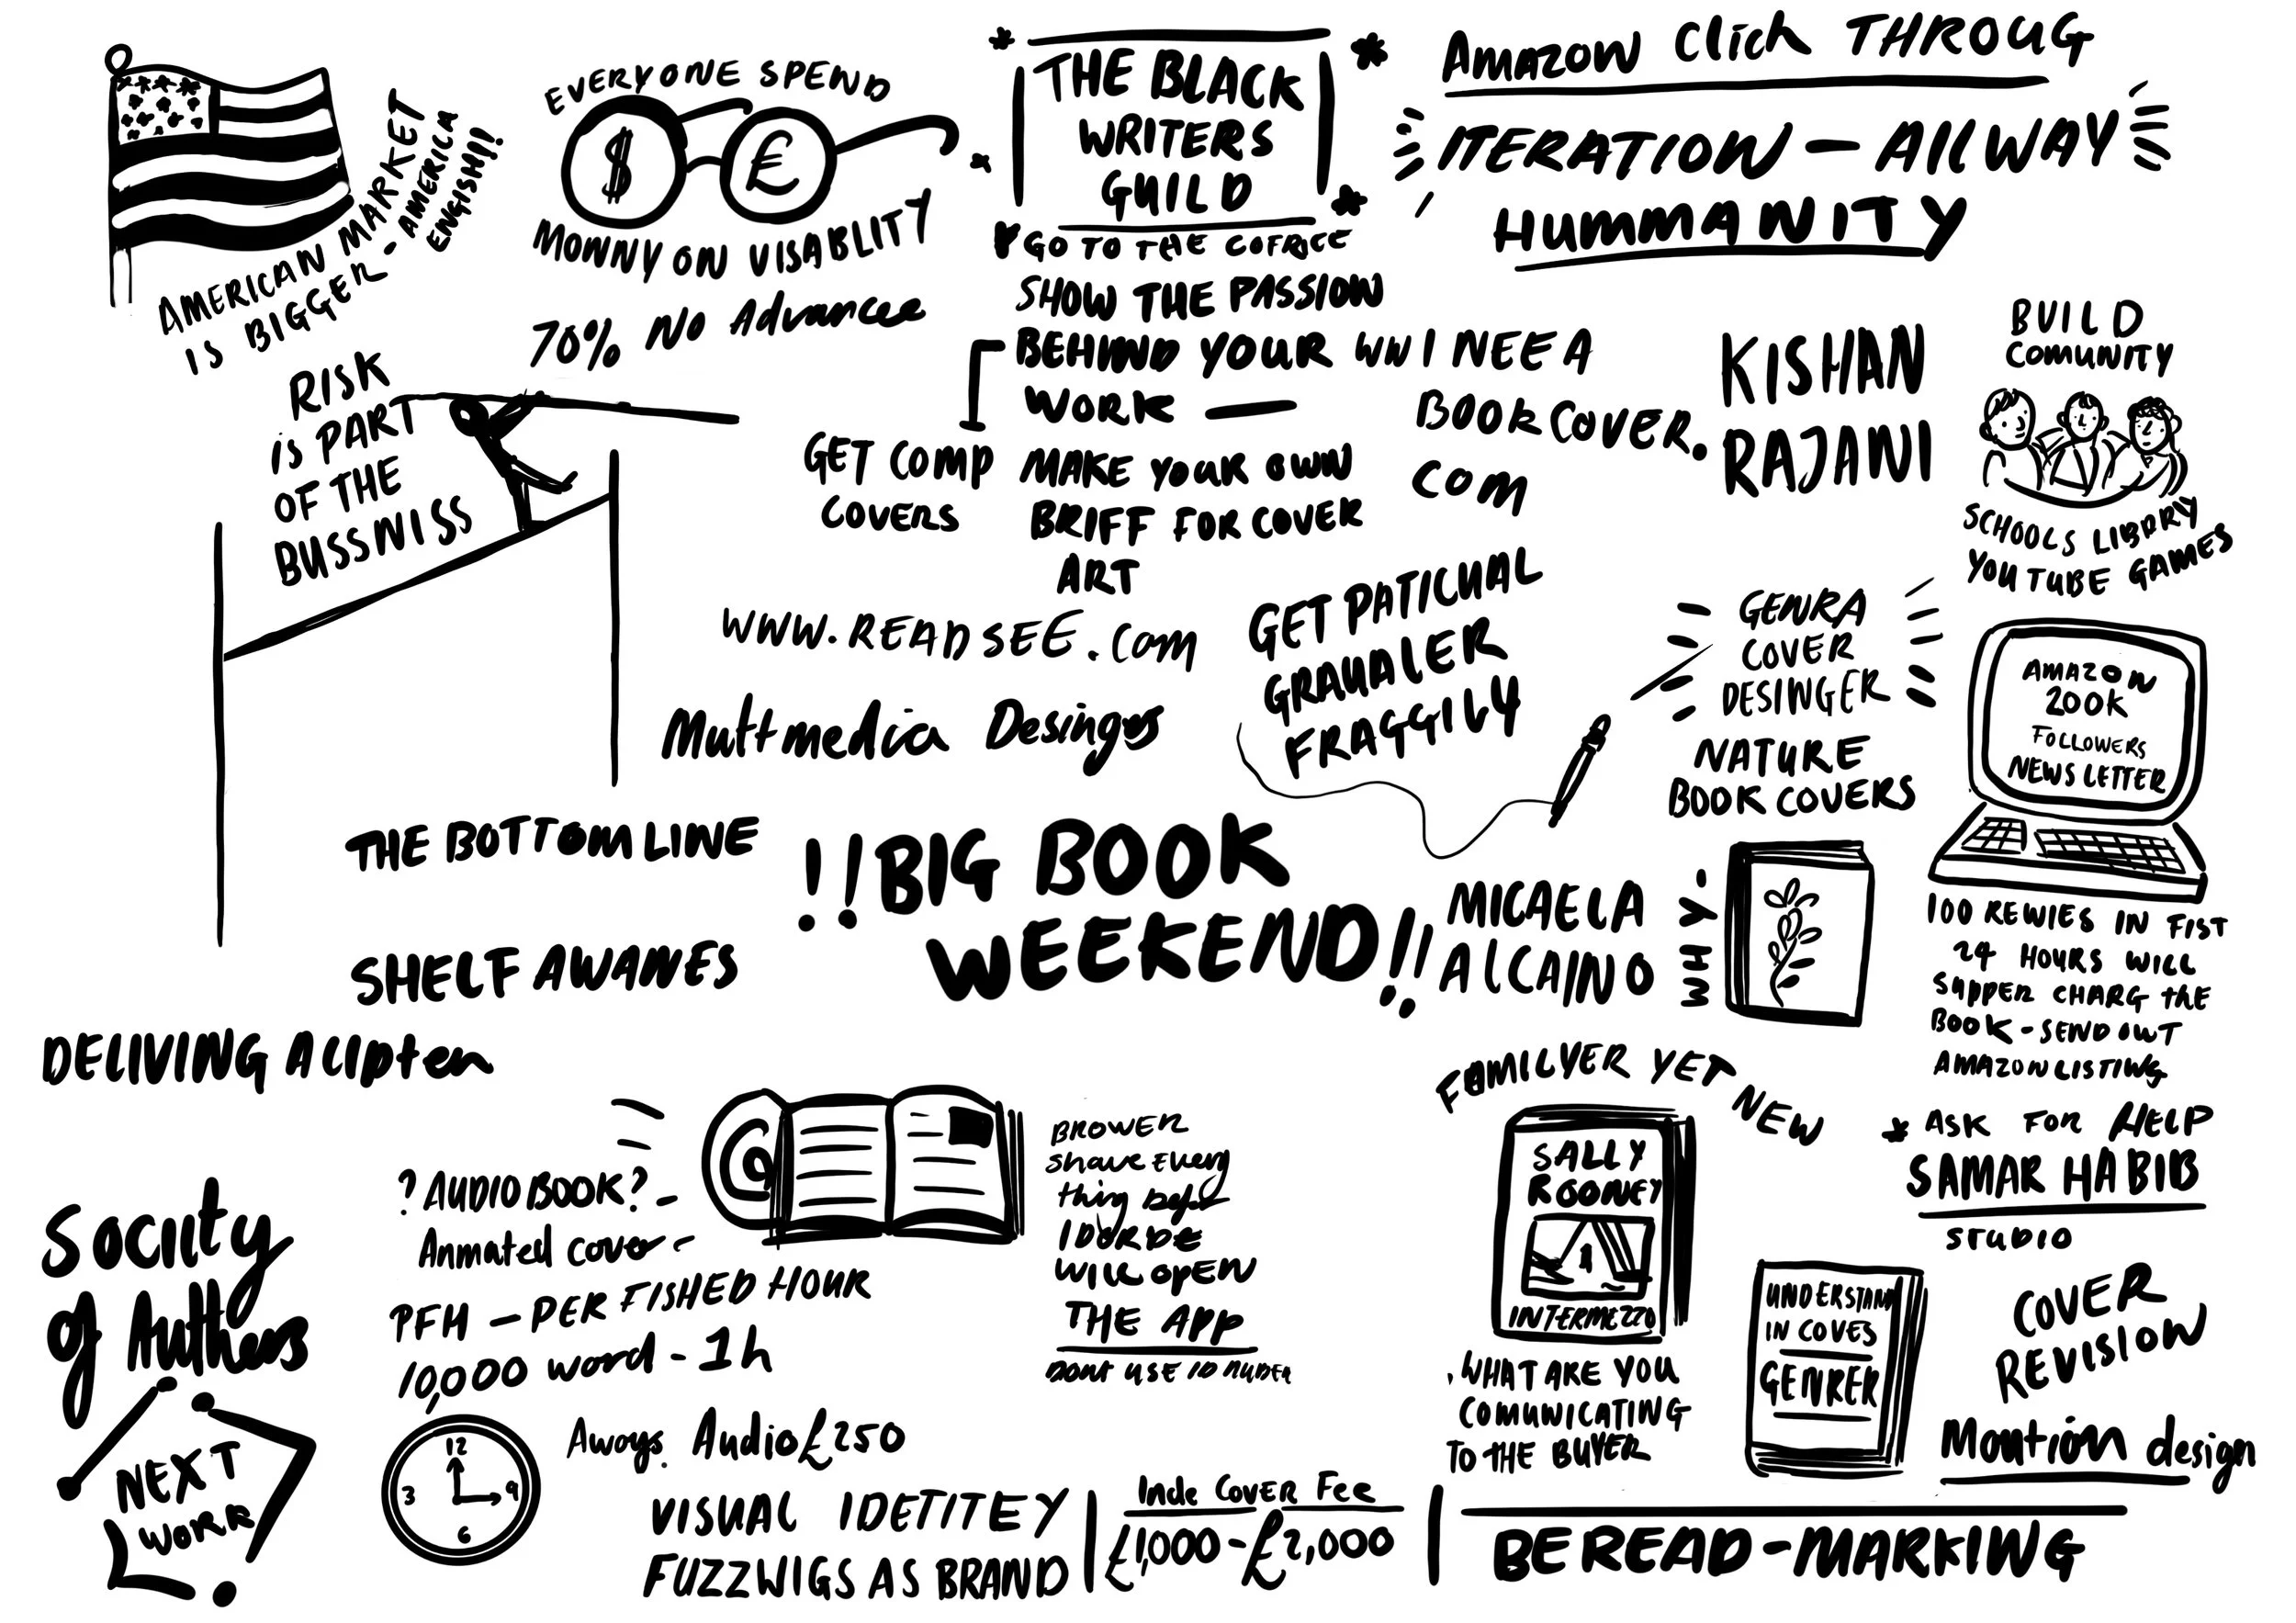 AMERICAN MARKET
IS BIGGER - AMERICA
ENGISH!!
EVERYONE SPEND
$ €
MONNY ON VISABLITY
70% NO Advances
THE BLACK
WRITERS
GUILD
GO TO THE
SHOW THE PASSION
BEHIND YOUR
WORK —
GET COMP
COVERS
MAKE YOUR OWN
BRIFF FOR COVER
ART
AMAZON Click THROUG
ITERATION — AllWAY
HUMMANITY
WW I NEE A
BOOK COVER.
COM
KISHAN
RAJANI
BUILD
COMUNITY
SCHOOLS LIBRARY
YOUTUBE GAMES
RISK
iS PART
OF THE
BUSSNISS
WWW.READSEE.COM
Multmedia
GET PATICUAL
FRAGGILY
GENRA
COVER
DESINGER
NATURE
BOOK COVERS
AMAZON
200K
FOLLOWERS
NEWS LETTER
THE BOTTOM LINE
!!BIG BOOK
WEEKEND!!
MICAELA
ALCAINO
WHY.
100 REWIES IN FIST
24 HOURS WILL
SUPPER CHARG the
BOOK - SEND OUT
AMAZON LISTING
SHELF
DELIVING
FAMILYER YET NEW
SALLY
ROONEY
INTERMEZZO
* ASK FOR HELP
SAMAR HABIB
STUDIO
? AUDIO BOOK? -
Anmated cover -
PFH - PER FISHED HOUR
10,000 word - 1h
BROWER
thing
WILL OPEN
THE APP
DONT USE
Society
of Authers
NEXT
WORK
12
3 9
6
Audio £250
VISUAL IDETITEY
FUZZWIGS AS BRAND
Inde COVER Fee
£1,000 - £2,000
. WHAT ARE YOU
COMUNICATING
TO THE BUYER
UNDERSTAN
IN COVES
GENRER
COVER
REVISION
Moution design
BEREAD-MARKING